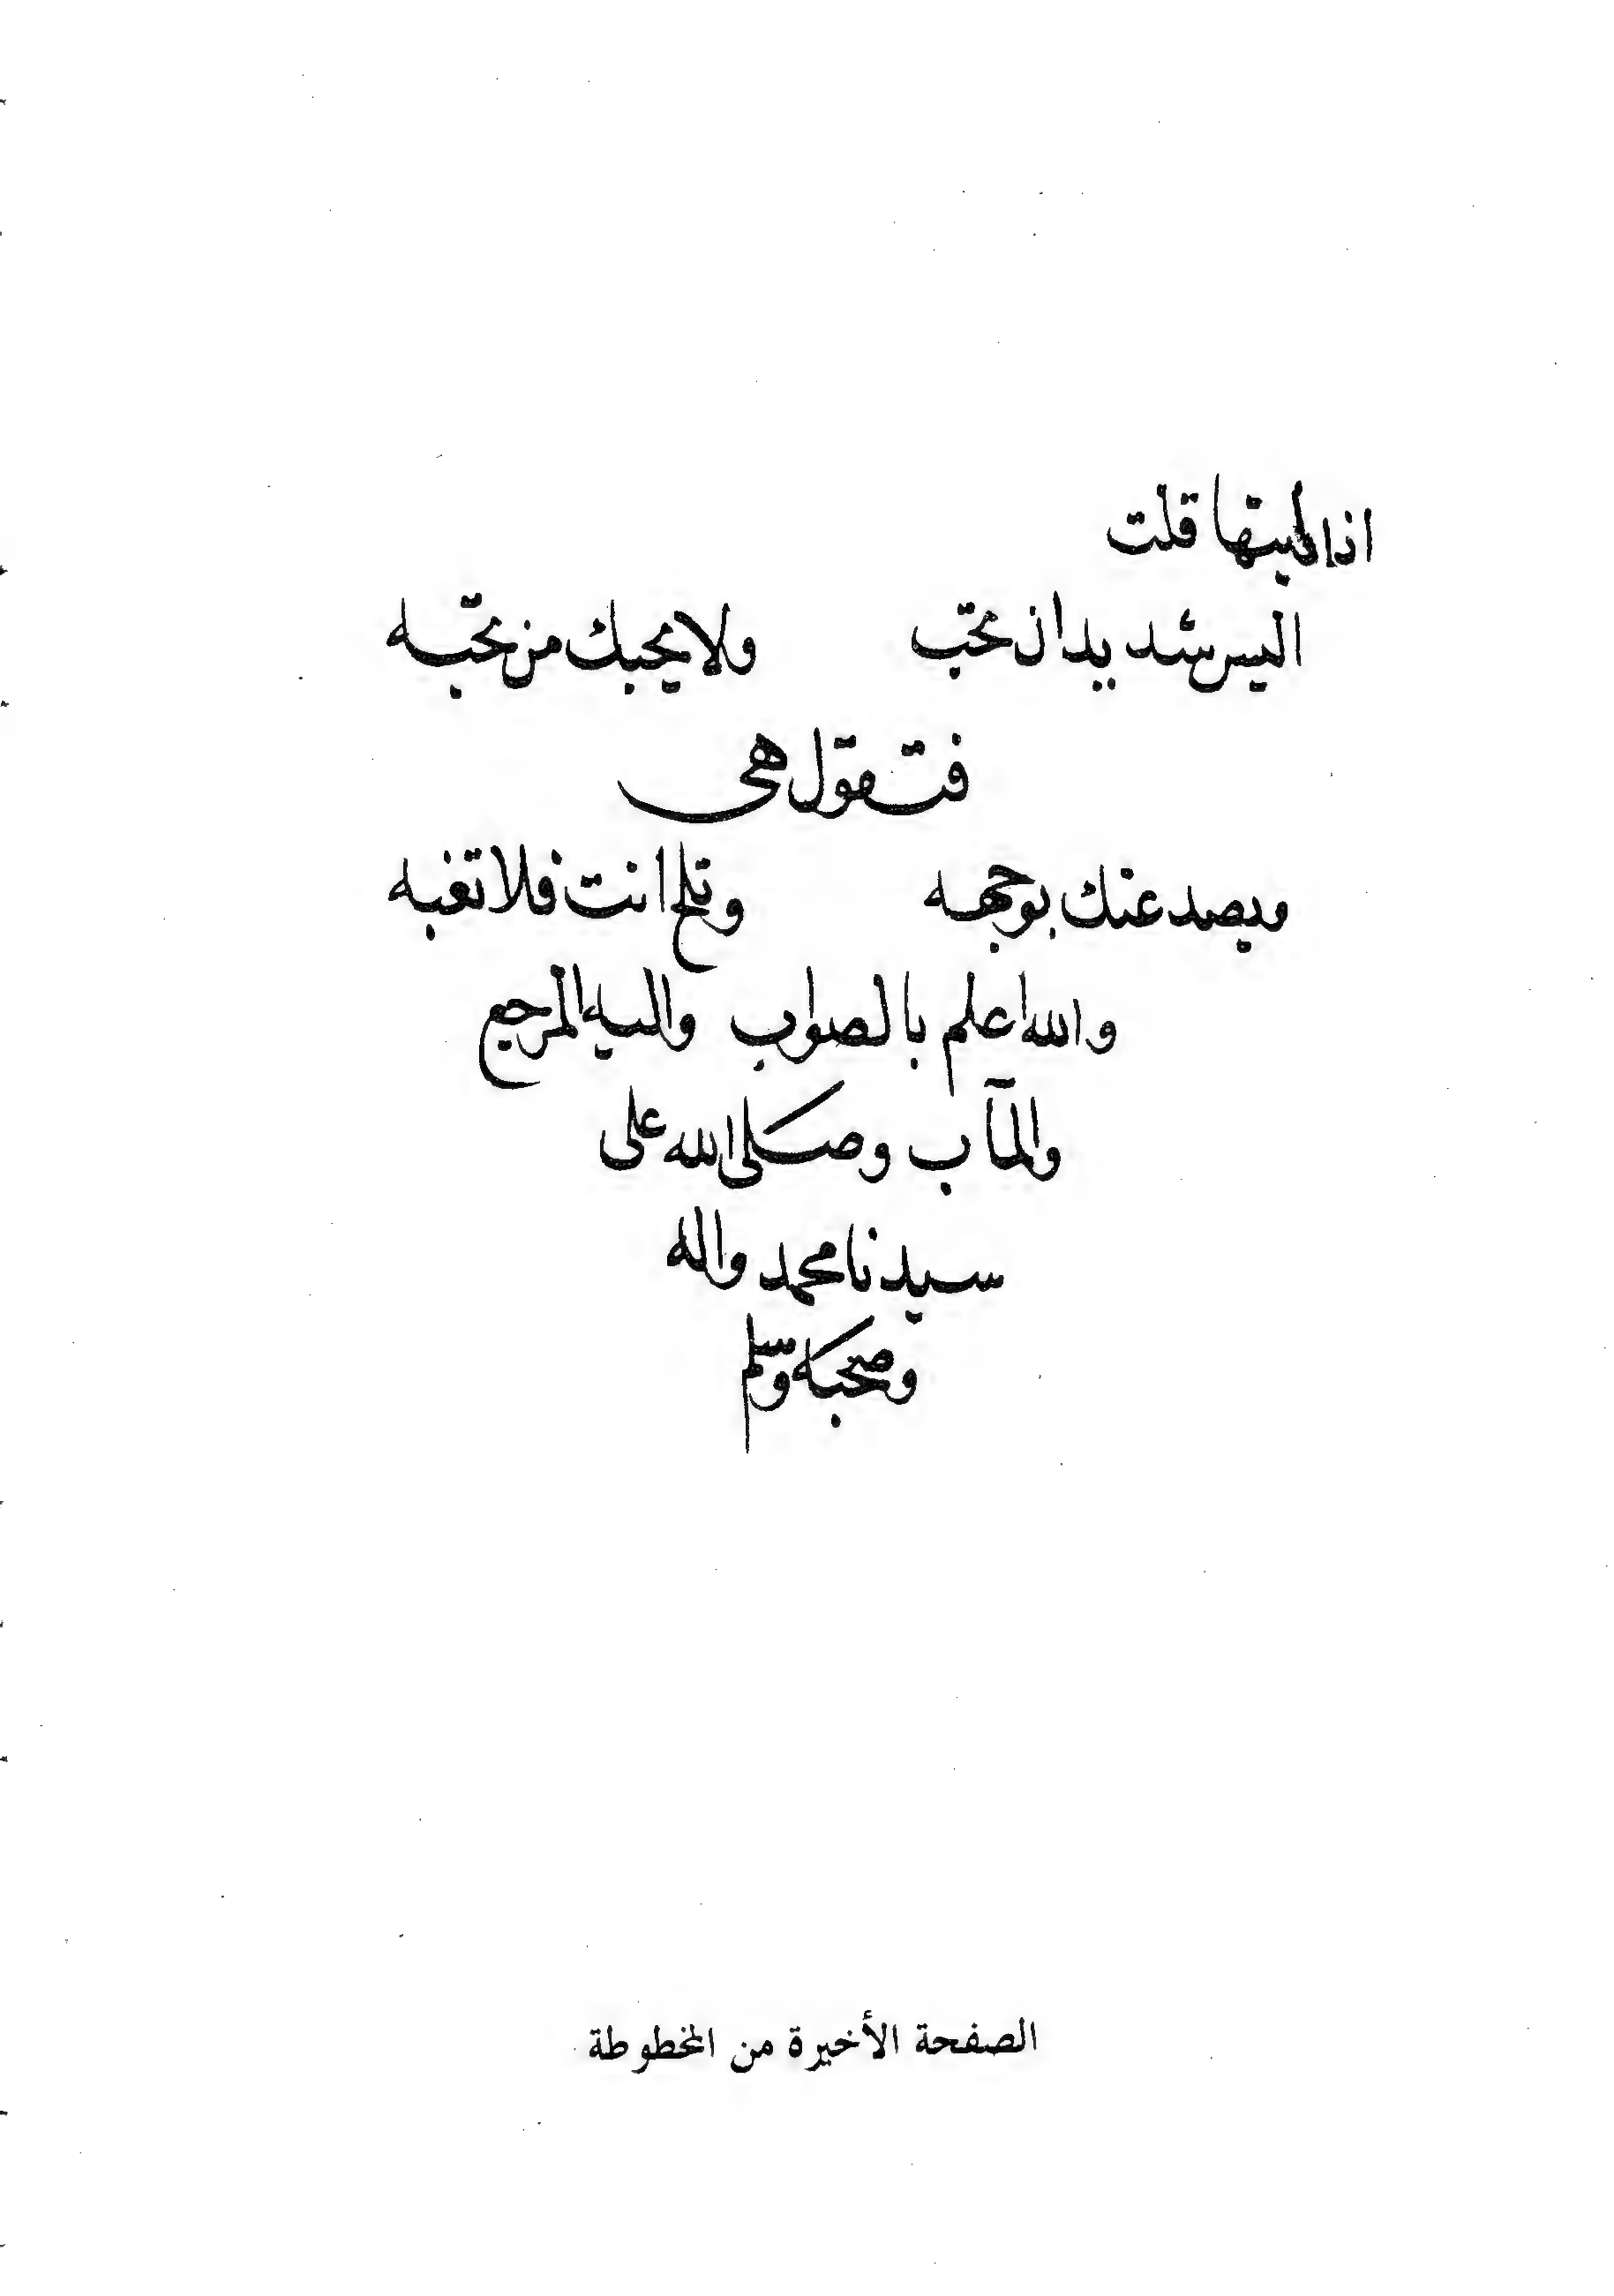 اذا لقيتها قلت
اليس شديد ان تحب ولا يحبك من تحبّه
فتقول هى
ويصد عنك بوجهه وتلح انت فلا تغبه
والله اعلم بالصواب واليه المرجع
والمآب وصلى الله على
سيدنا محمد واله
وصحبه وسلم
الصفحة الأخيرة من المخطوطة